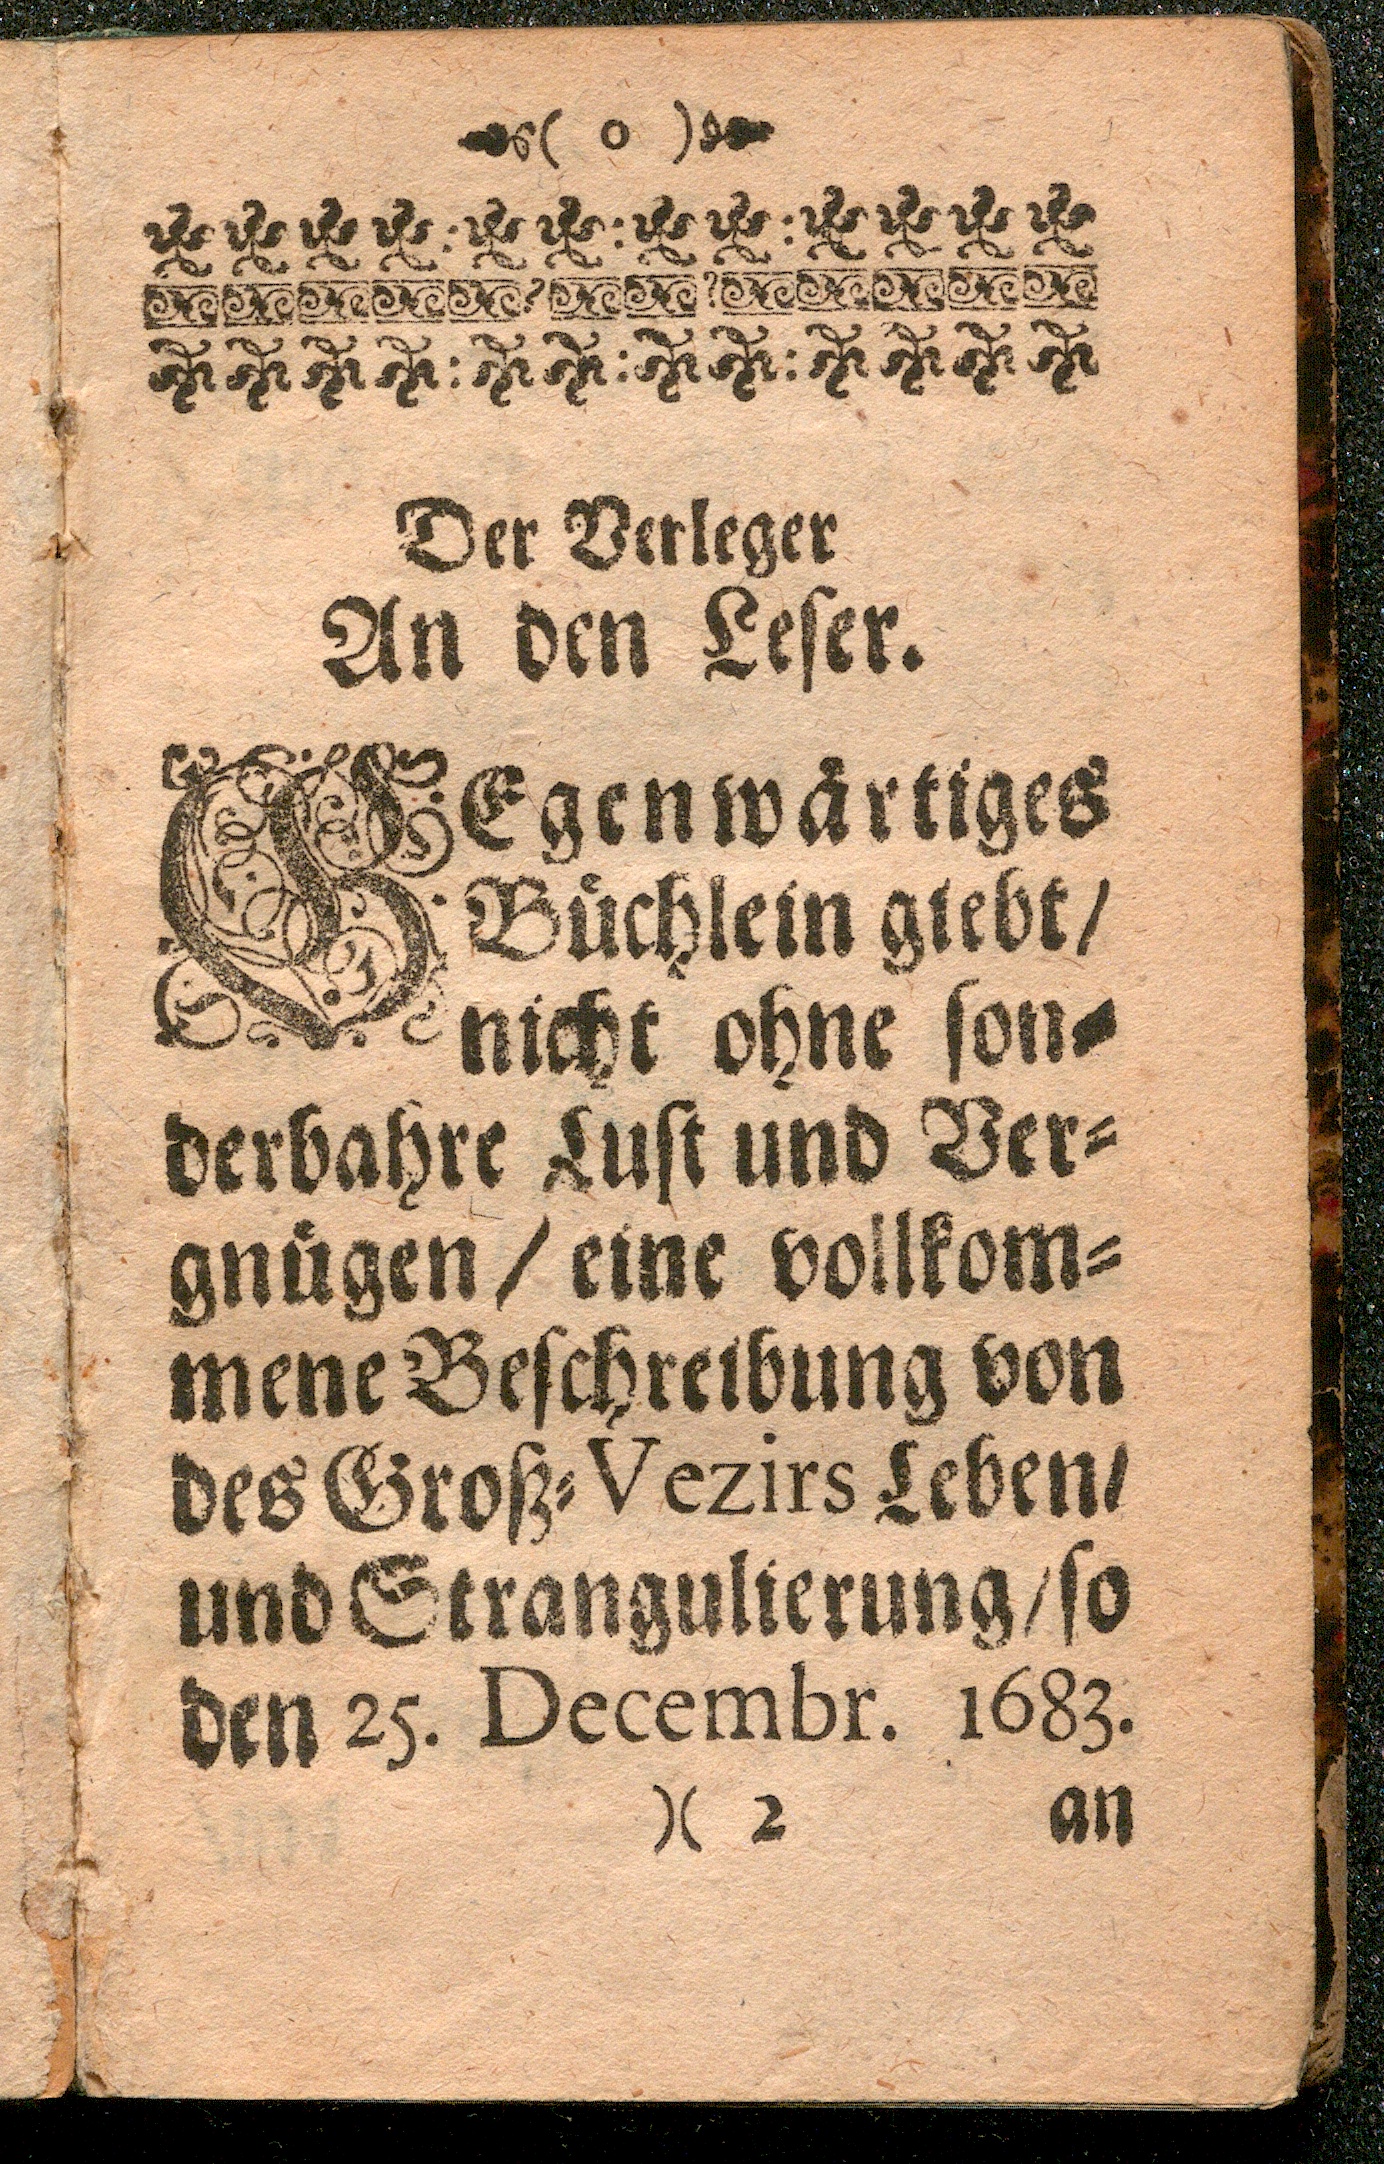 ( o )
Der Verleger
An den Leſer.
GEgenwaͤrtiges
Buͤchlein giebt/
nicht ohne ſon⸗
derbahre Luſt und Ver⸗
gnuͤgen / eine vollkom⸗
mene Beſchreibung von
des Groß⸗Vezirs Leben/
und Strangulierung/ſo
den 25. Decembr. 1683.
)( 2 an